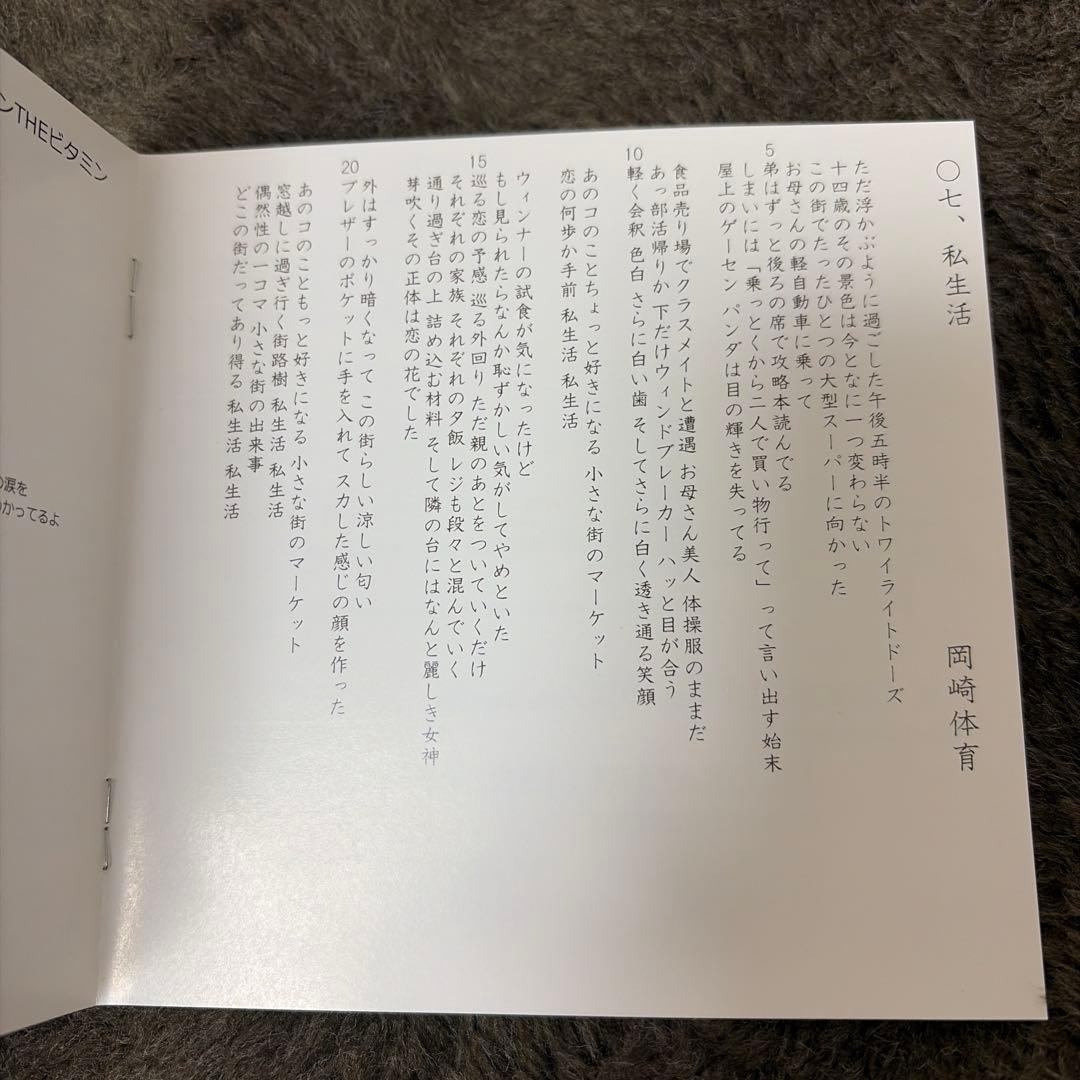 ンTHEビタミン
の涙を
わかってるよ
〇七、私生活
岡崎体育
ただ浮かぶように過ごした午後五時半のトワイライトドーズ
十四歳のその景色は今となに一つ変わらない
この街でたったひとつの大型スーパーに向かった
お母さんの軽自動車に乗って
5 弟はずっと後ろの席で攻略本読んでる
しまいには「乗っとくから二人で買い物行って」 って言い出す始末
屋上のゲーセン パンダは目の輝きを失ってる
食品売り場でクラスメイトと遭遇 お母さん美人 体操服のままだ
あっ部活帰りか 下だけウィンドブレーカー ハッと目が合う
10 軽く会釈 色白 さらに白い歯 そしてさらに白く透き通る笑顔
あのコのことちょっと好きになる 小さな街のマーケット
恋の何歩か手前 私生活 私生活
ウィンナーの試食が気になったけど
もし見られたらなんか恥ずかしい気がしてやめといた
15 巡る恋の予感 巡る外回り ただ親のあとをついていくだけ
それぞれの家族 それぞれの夕飯 レジも段々と混んでいく
通り過ぎ台の上 詰め込む材料 そして隣の台にはなんと麗しき女神
芽吹くその正体は恋の花でした
外はすっかり暗くなって この街らしい涼しい匂い
20 ブレザーのポケットに手を入れて スカした感じの顔を作った
あのコのこともっと好きになる 小さな街のマーケット
窓越しに過ぎ行く街路樹 私生活 私生活
偶然性の一コマ 小さな街の出来事
どこの街だってあり得る 私生活 私生活